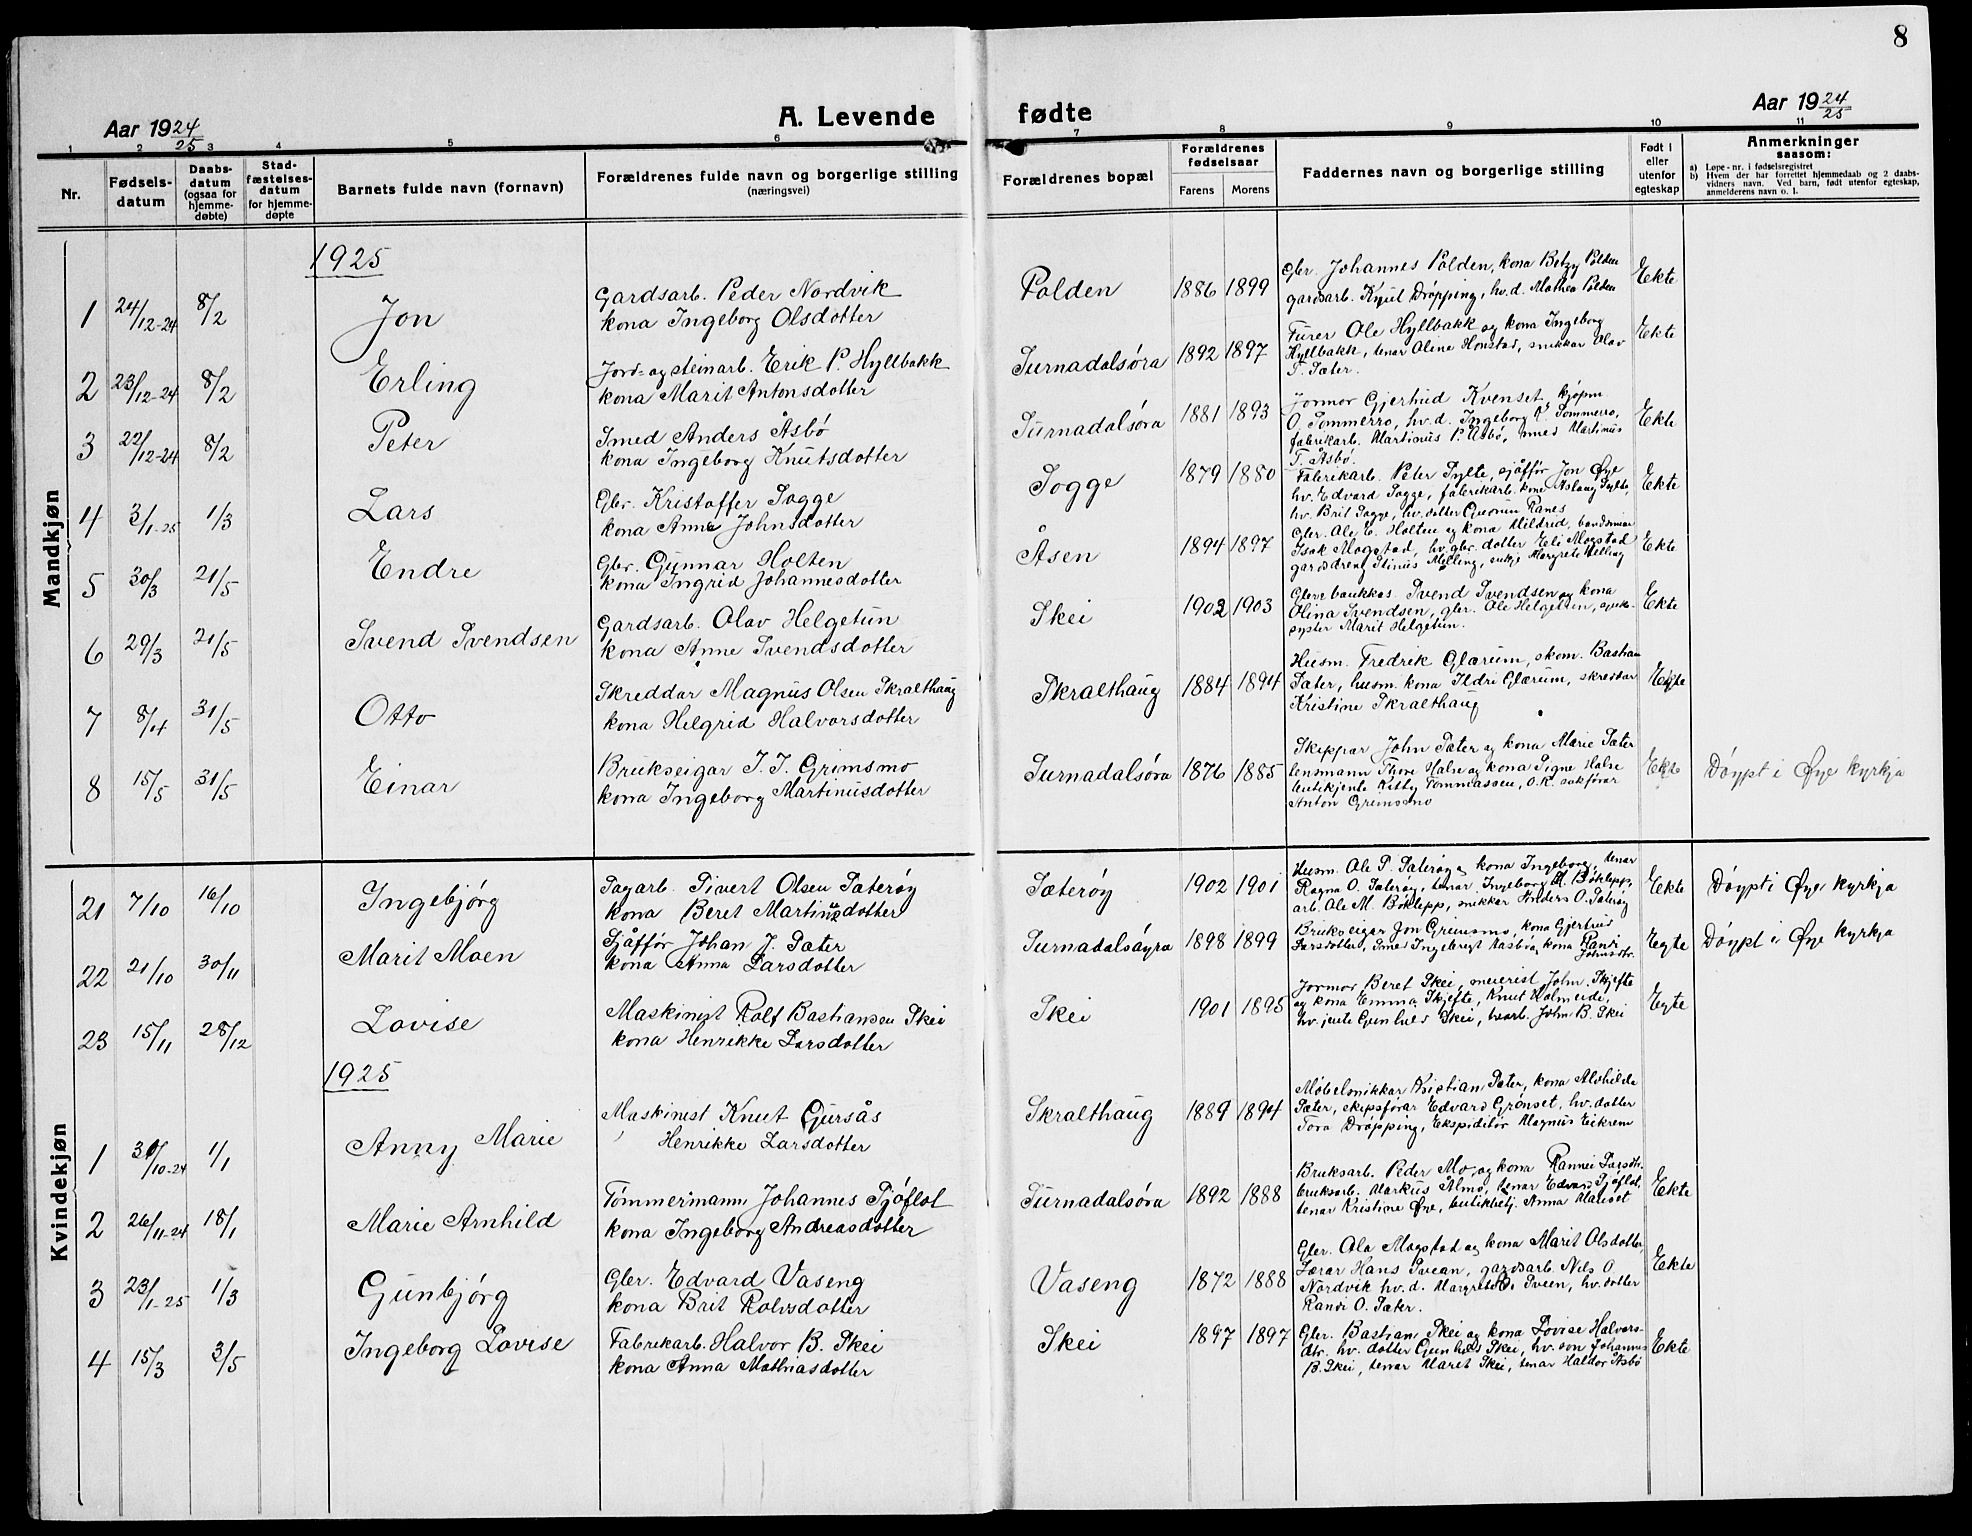 8
Aar 1924/25
A. Levende
fødte
Aar 1924/25
1 2 3 4 5 6 7 8 9 10 11
Nr.
Fødsels-
datum
Daabs-
datum
(ogsaa for
hjemme-
døbte)
Stad-
fæstelses-
datum
for hjemme-
døpte
Barnets fulde navn (fornavn)
Forældrenes fulde navn og borgerlige stilling
(næringsvei)
Forældrenes bopæl
Forældrenes
fødselsaar
Farens
Morens
Faddernes navn og borgerlige stilling
Født i
eller
utenfor
egteskap
Anmerkninger
saasom:
a) Løpe-nr. i fødselsregistret
b) Hvem der har forrettet hjemmedaab og 2 daabs-
vidners navn. Ved barn, født utenfor egteskap,
anmelderens navn o. l.
Mandkjøn
1925
1 24/12-24 8/2 Jon
Gardsarb. Peder Nordvik
kona Ingeborg Olsdotter
Polden 1886 1899
Gbr. Johannes Polden, kona Betzy Polden
gardsarb. Knut Drøpping, hv.d. Mathea Polden
Ekte
2 23/12-24 8/2 Erling
Jord- og steinarb. Erik P. Hyllbakk
kona Marit Antonsdotter
Surnadalsøra 1892 1897
Furer Ole Hyllbakk og kona Ingeborg
Hyllbakk, tenar Aline Honstad, snikkar Olav
T. Sæter.
Ekte
3 22/12-24 8/2 Peter
Smed Anders Åsbø
kona Ingeborg Knutsdotter
Surnadalsøra 1881 1893
Jormor Gjerhud Kvenset, kjøpm
O. Sommerro, hv.d. Ingeborg Sommerro,
fabrikarb. Martinus P. Åsbø, smed Martinus
T. Åsbø.
Ekte
4 3/1-25 1/3 Lars
Gbr. Kristoffer Sogge
kona Anne Johnsdotter
Sogge 1879 1880
Fabrikarb. Peter Sylte, sjåffør Jon Øye
hv. Edvard Sogge, fabrikarb. kone Aslaug Sylte,
hv. Brit Sogge, hv. dotter Ranes
Ekte
5 30/3 21/5 Endre
Gbr. Gunnar Holten
kona Ingrid Johannesdotter
Åsen 1894 1897
Gbr. Ole E. Holten og kona Mildrid,
Isak Mogstad, hv. gbr. dotter Eli Mogstad
gardsdreng Stinus Melling, Margrete Melling
Ekte
6 29/3 21/5 Svend Svendsen
Gardsarb. Olav Helgetun
kona Anne Svendsdotter
Skei 1902 1903
Svend Svendsen og kona
Olina Svendsen, gbr. Ole Helgetun,
syster Marit Helgetun.
Ekte
7 8/4 31/5 Otto
Skreddar Magnus Olsen Skralthaug
kona Helgrid Halvorsdotter
Skralthaug 1884 1894
Husm. Fredrik Glærum, skom. Bastian
Sæter, husm. kona Ildri Glærum, skreddar
Kristine Skralthaug
Egte
8 15/5 31/5 Einar
Brukseigar J. J. Grimsmo
kona Ingeborg Martinusdotter
Surnadalsøra 1876 1885
Skippar John Sæter og kona Marie Sæter
lensmann Thore Halse og kona Signe Halse
butikjente Kitty Tommassen, O.R. sakførar
Anton Grimsmo
Ekte
Døypt i Øye kyrkja
Kvindekjøn
21 7/10 16/10 Ingebjørg
Sagarb. Sivert Olsen Sæterøy
kona Beret Martinusdotter
Sæterøy 1902 1901
Husm. Ole P. Sæterøy kona Ingeborg, tenar
Ragna O. Sæterøy, tenar Ingeborg M. Bøklepp,
arb. Ole M. Bøklepp, snikkar O. Sæterøy
Ekte
Døypt i Øye kyrkja
22 21/10 30/11 Marit Moen
Sjåffør Johan J. Sæter
kona Anna Larsdotter
Surnadalsøyra 1898 1899
Brukseigar Jon Grimsmo, kona Gjertrud
Larsdotter, Smed Ingebrigt Aasbø, kona Randi
Johnsdtr.
Egte
Døypt i Øye kyrkja
23 15/11 28/12 Lovise
Maskinist Rolf Bastiansen Skei
kona Henrikke Larsdotter
Skei 1901 1895
Jormor Beret Skei, meierist John Skjefte
og kona Emma Skjefte, Knut Holmeide,
hv. jente Gunhild Skei, John B. Skei
Egte
1925
1 31/10-24 1/1 Anny Marie
Maskinist Knut Gursås
Henrikke Larsdotter
Skralthaug 1889 1894
Møbelsnikkar Kristian Sæter, kona Alvhilde
Sæter, skipsførar Edvard Grønset, hv. dotter
Tora Drøpping, Ekspeditør Magnus Eikrem
2 26/11-24 18/1 Marie Arnhild
Tømmermann Johannes Sjøflot
kona Ingeborg Andreasdotter
Surnadalsøra 1892 1888
Bruksarb. Peder Mo, og kona
bruksarb. Markus Almo, tenar Edvard Sjøflot,
tenar Kristine Øye, butikkbtj. Anna Mauset
Ekte
3 23/1-25 1/3 Gunbjørg
Gbr. Edvard Vaseng
kona Brit Rolvsdotter
Vaseng 1872 1888
Gbr. Ola Mogstad og kona Marit Olsdotter,
Lærar Hans Svean, gardsarb. Nils O
Nordvik hv. d. Margrete Sveen, hv. dotter
Randi O. Sæter.
Ekte
4 15/3 3/5 Ingeborg Lovise
Fabrikarb. Halvor B. Skei
kona Anna Mathiasdotter
Skei 1897 1897
Gbr. Bastian Skei og kona Lovise Halvors-
dtr. hv. dotter Gunhild Skei, hv. son Johannes
B. Skei, tenar Marit Skei, tenar Haldor Åsbø
Ekte